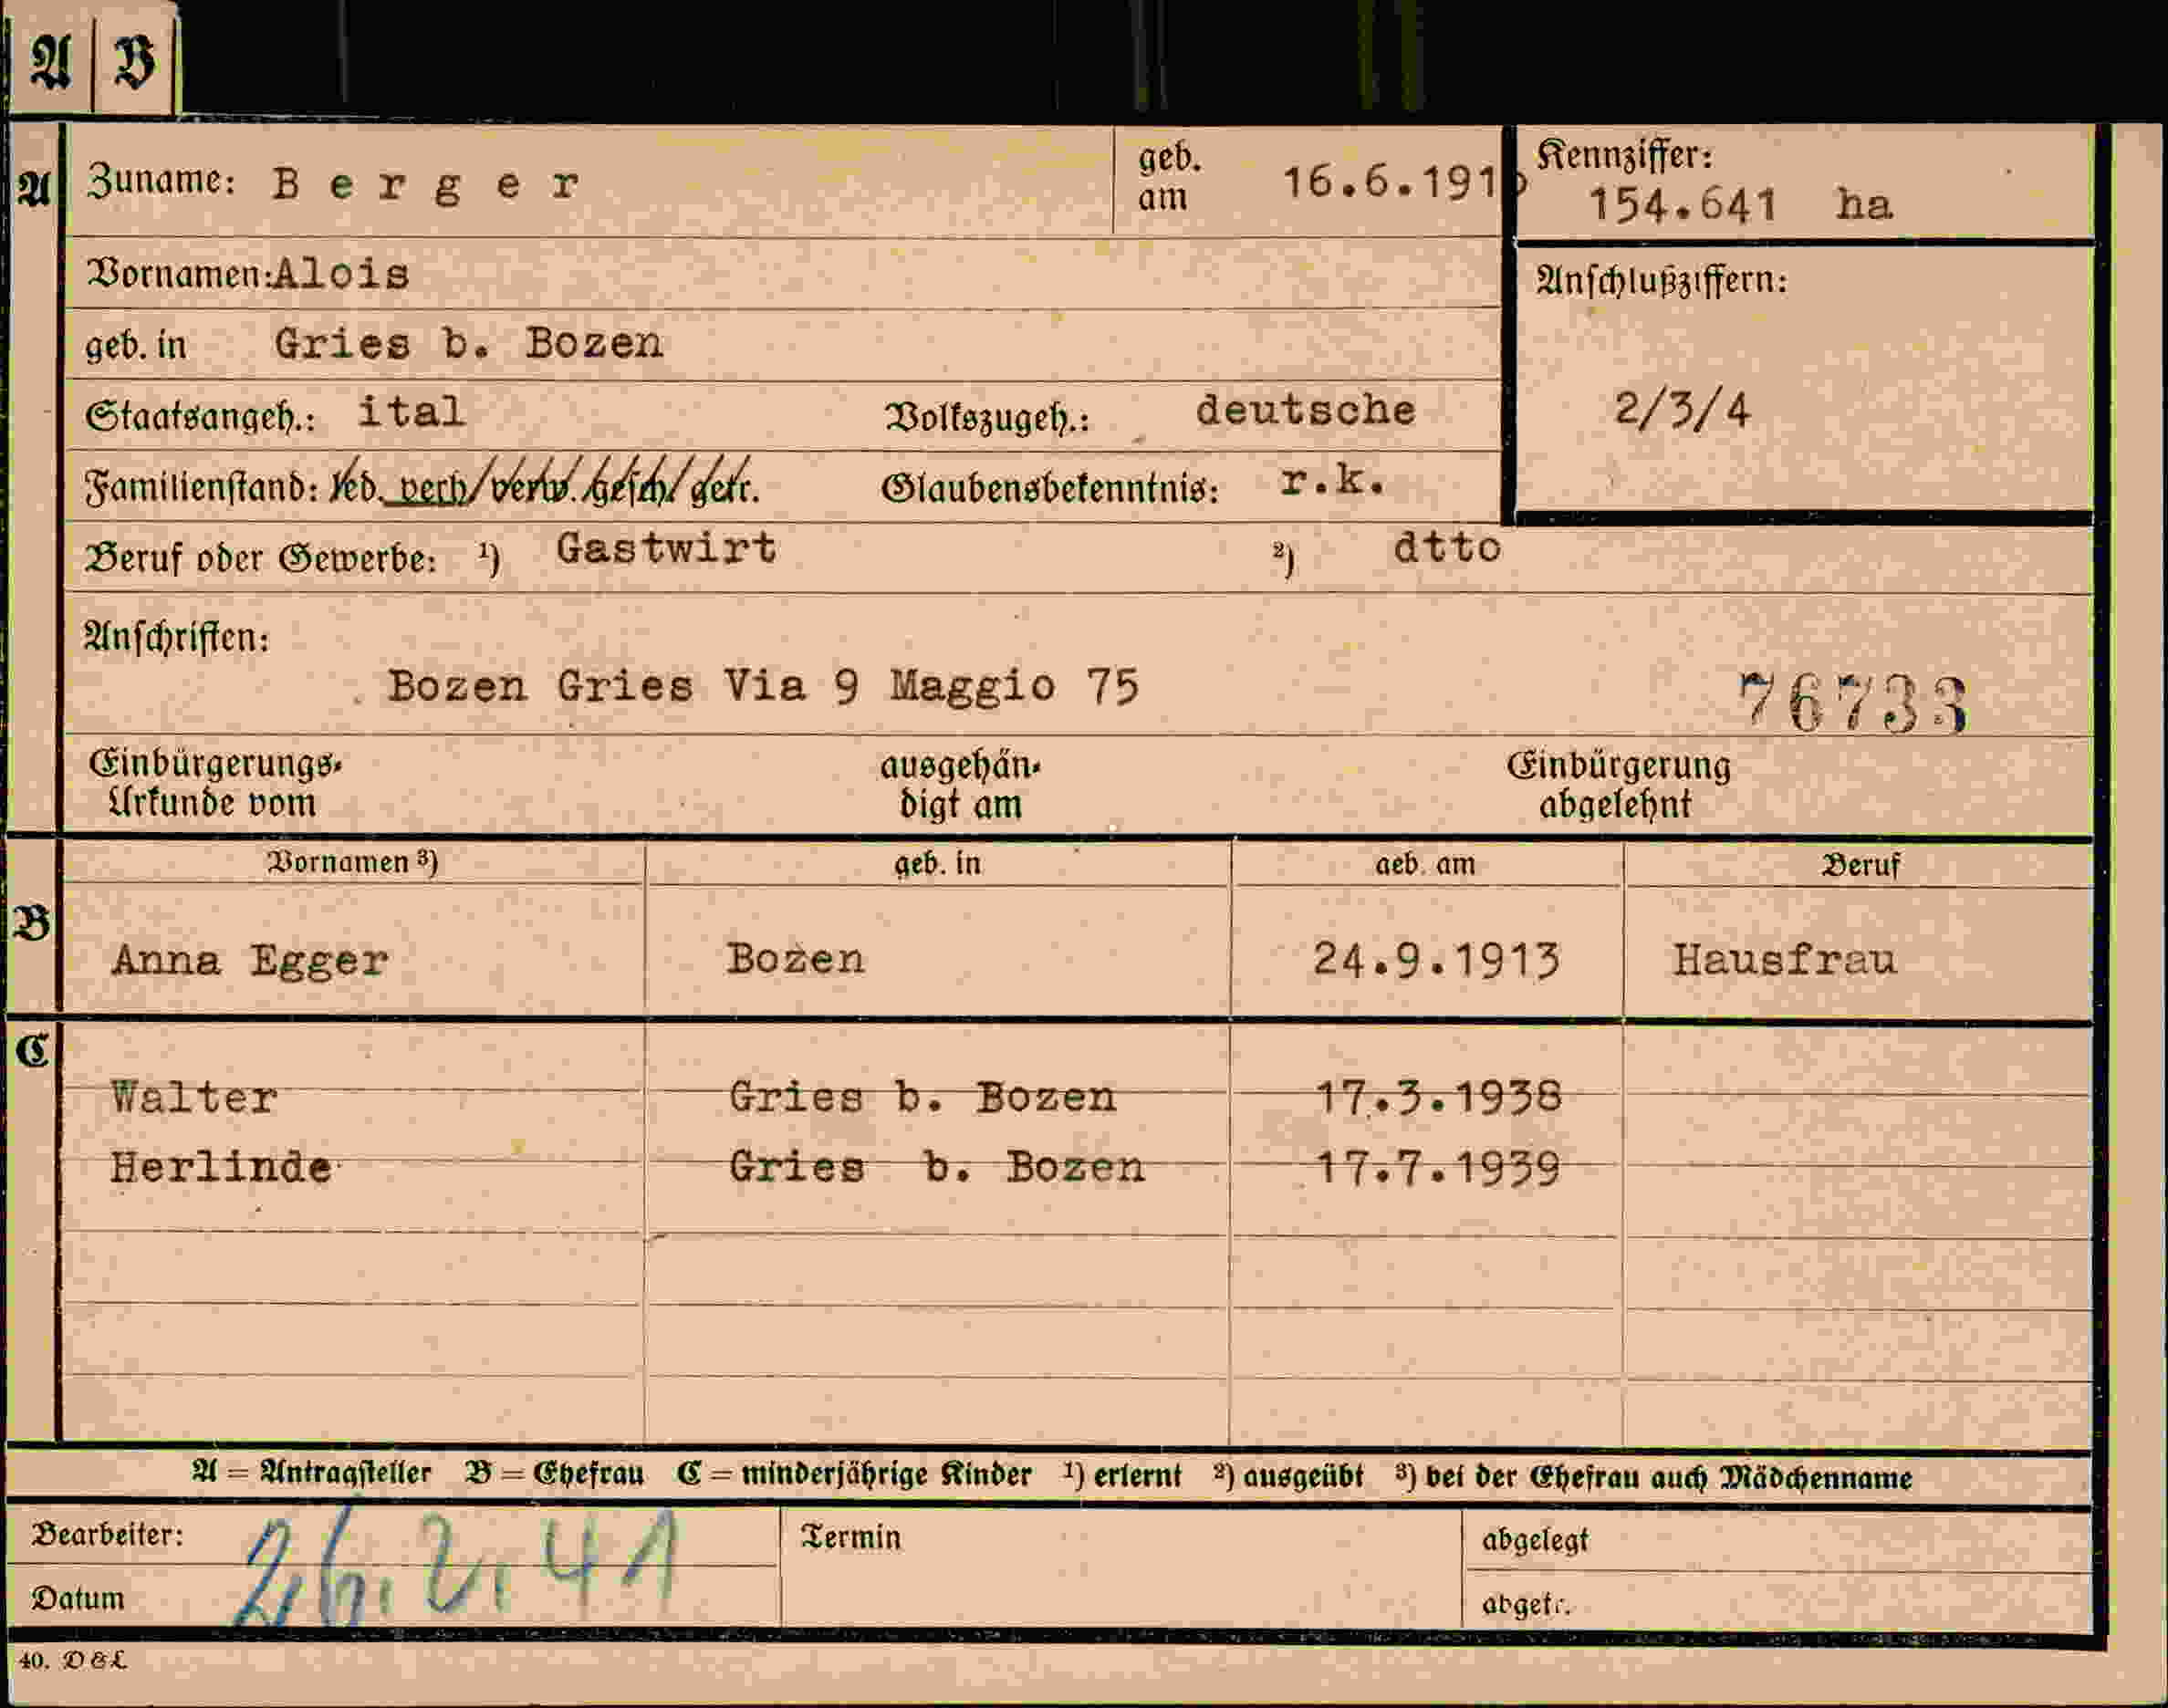 A B
A Zuname: Berger geb. am 16.6.191 Kennziffer: 154.641 ha
Vornamen: Alois Anschlußziffern:
geb. in Gries b. Bozen
Staatsangeh.: ital Volkszugeh.: deutsche 2/3/4
Familienstand: led. verh. verw. gesch. getr. Glaubensbekenntnis: r.k.
Beruf oder Gewerbe: ¹) Gastwirt ²) dtto
Anschriften:
Bozen Gries Via 9 Maggio 75 76733
Einbürgerungs- ausgehän- Einbürgerung
Urkunde vom digt am abgelehnt
Vornamen ³) geb. in geb. am Beruf
B Anna Egger Bozen 24.9.1913 Hausfrau
C
Walter Gries b. Bozen 17.3.1938
Herlinde Gries b. Bozen 17.7.1939
A = Antragsteller B = Ehefrau C = minderjährige Kinder ¹) erlernt ²) ausgeübt ³) bei der Ehefrau auch Mädchenname
Bearbeiter: Termin abgelegt
Datum 26.2.41 abgetr.
40. D & L